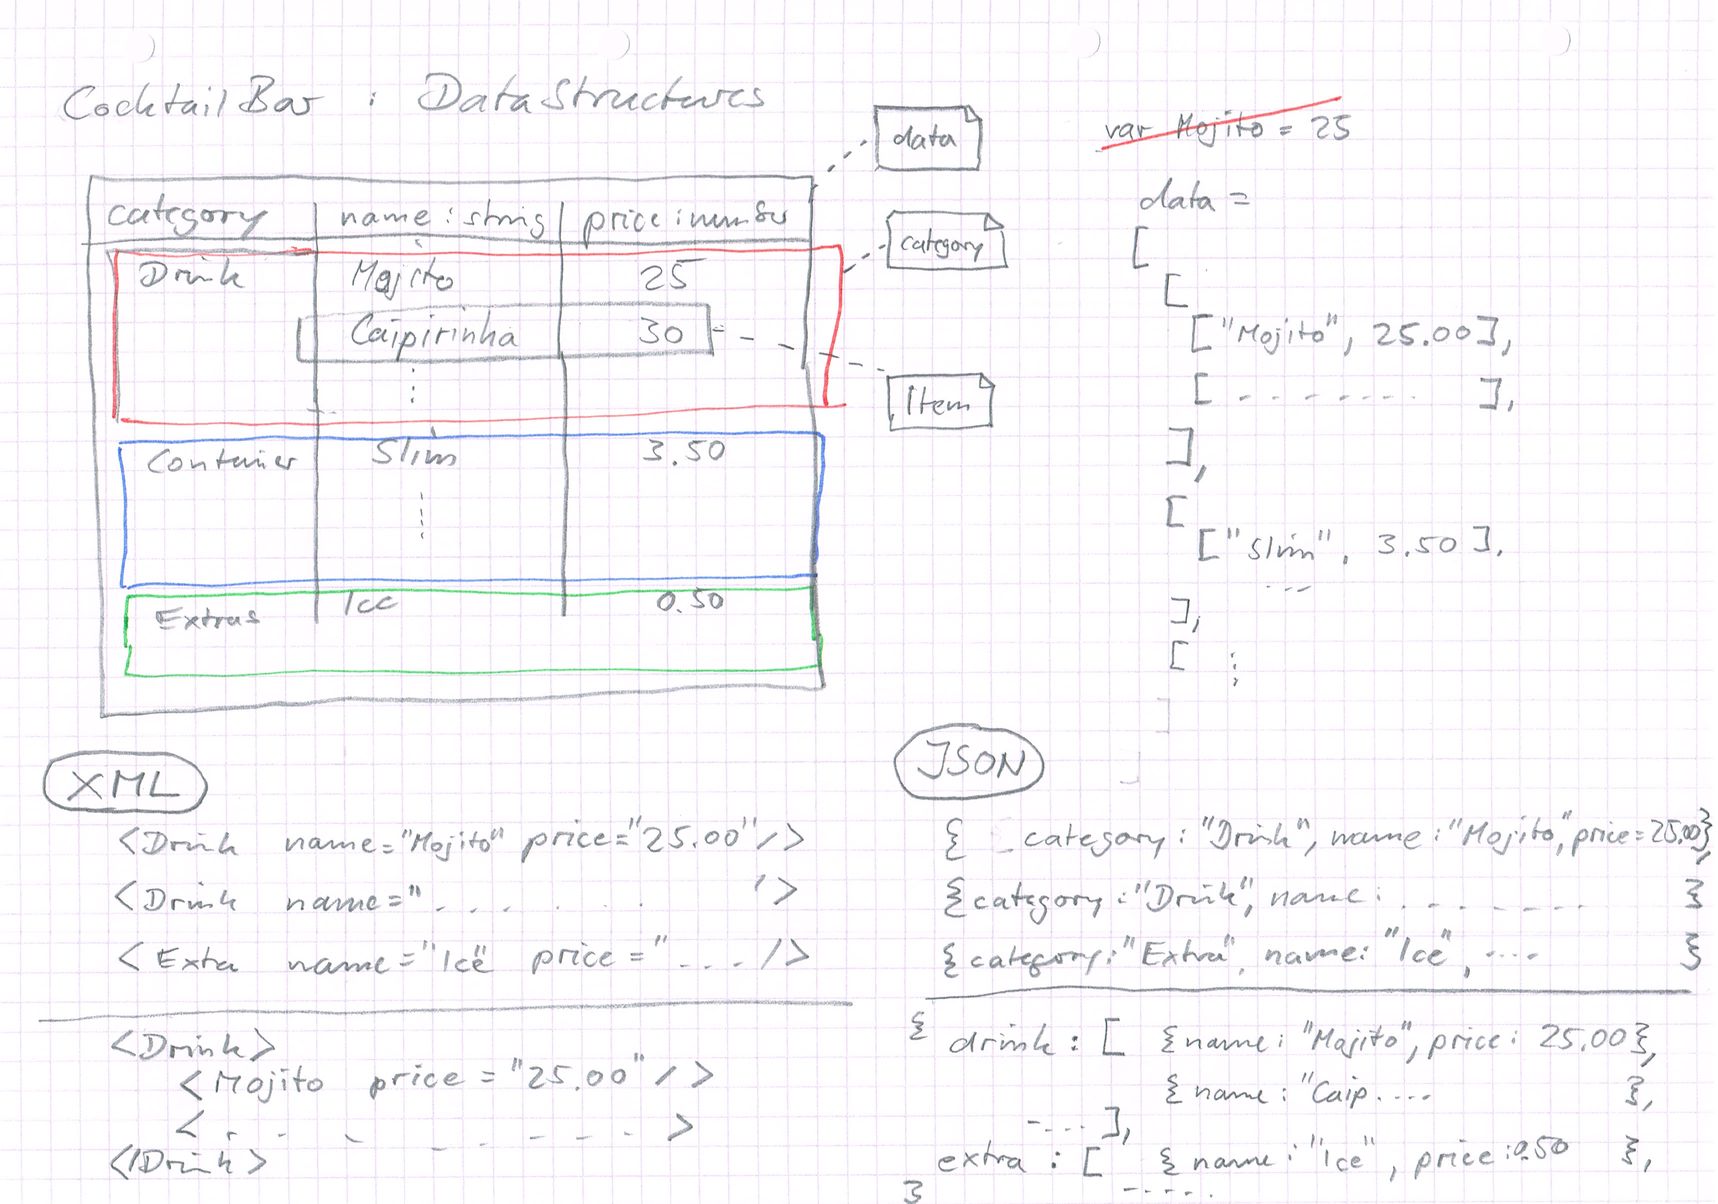 Cocktail Bar : DataStructures
data
category
Item
category name : string price : number
Drink Mojito 25
Caipirinha 30
Container Slim 3.50
Extras Ice 0.50
var Mojito = 25
data =
[
[
["Mojito", 25.00],
[ . . . . . . . ],
],
[
["Slim", 3.50],
...
],
[ :
]
]
XML
<Drink name="Mojito" price="25.00"/>
<Drink name=". . . . . '>
<Extra name="Ice" price=".... />
<Drink>
<Mojito price = "25.00"/>
< . - - - - - - - >
</Drink>
JSON
{ category : "Drink", name : "Mojito", price = 25.00},
{category : "Drink", name : . . . . . . . }
{category: "Extra", name: "Ice", .... }
{ drink : [ {name : "Mojito", price : 25.00},
{ name : "Caip.... },
....],
extra : [ { name : "Ice", price : 0.50 },
} .....